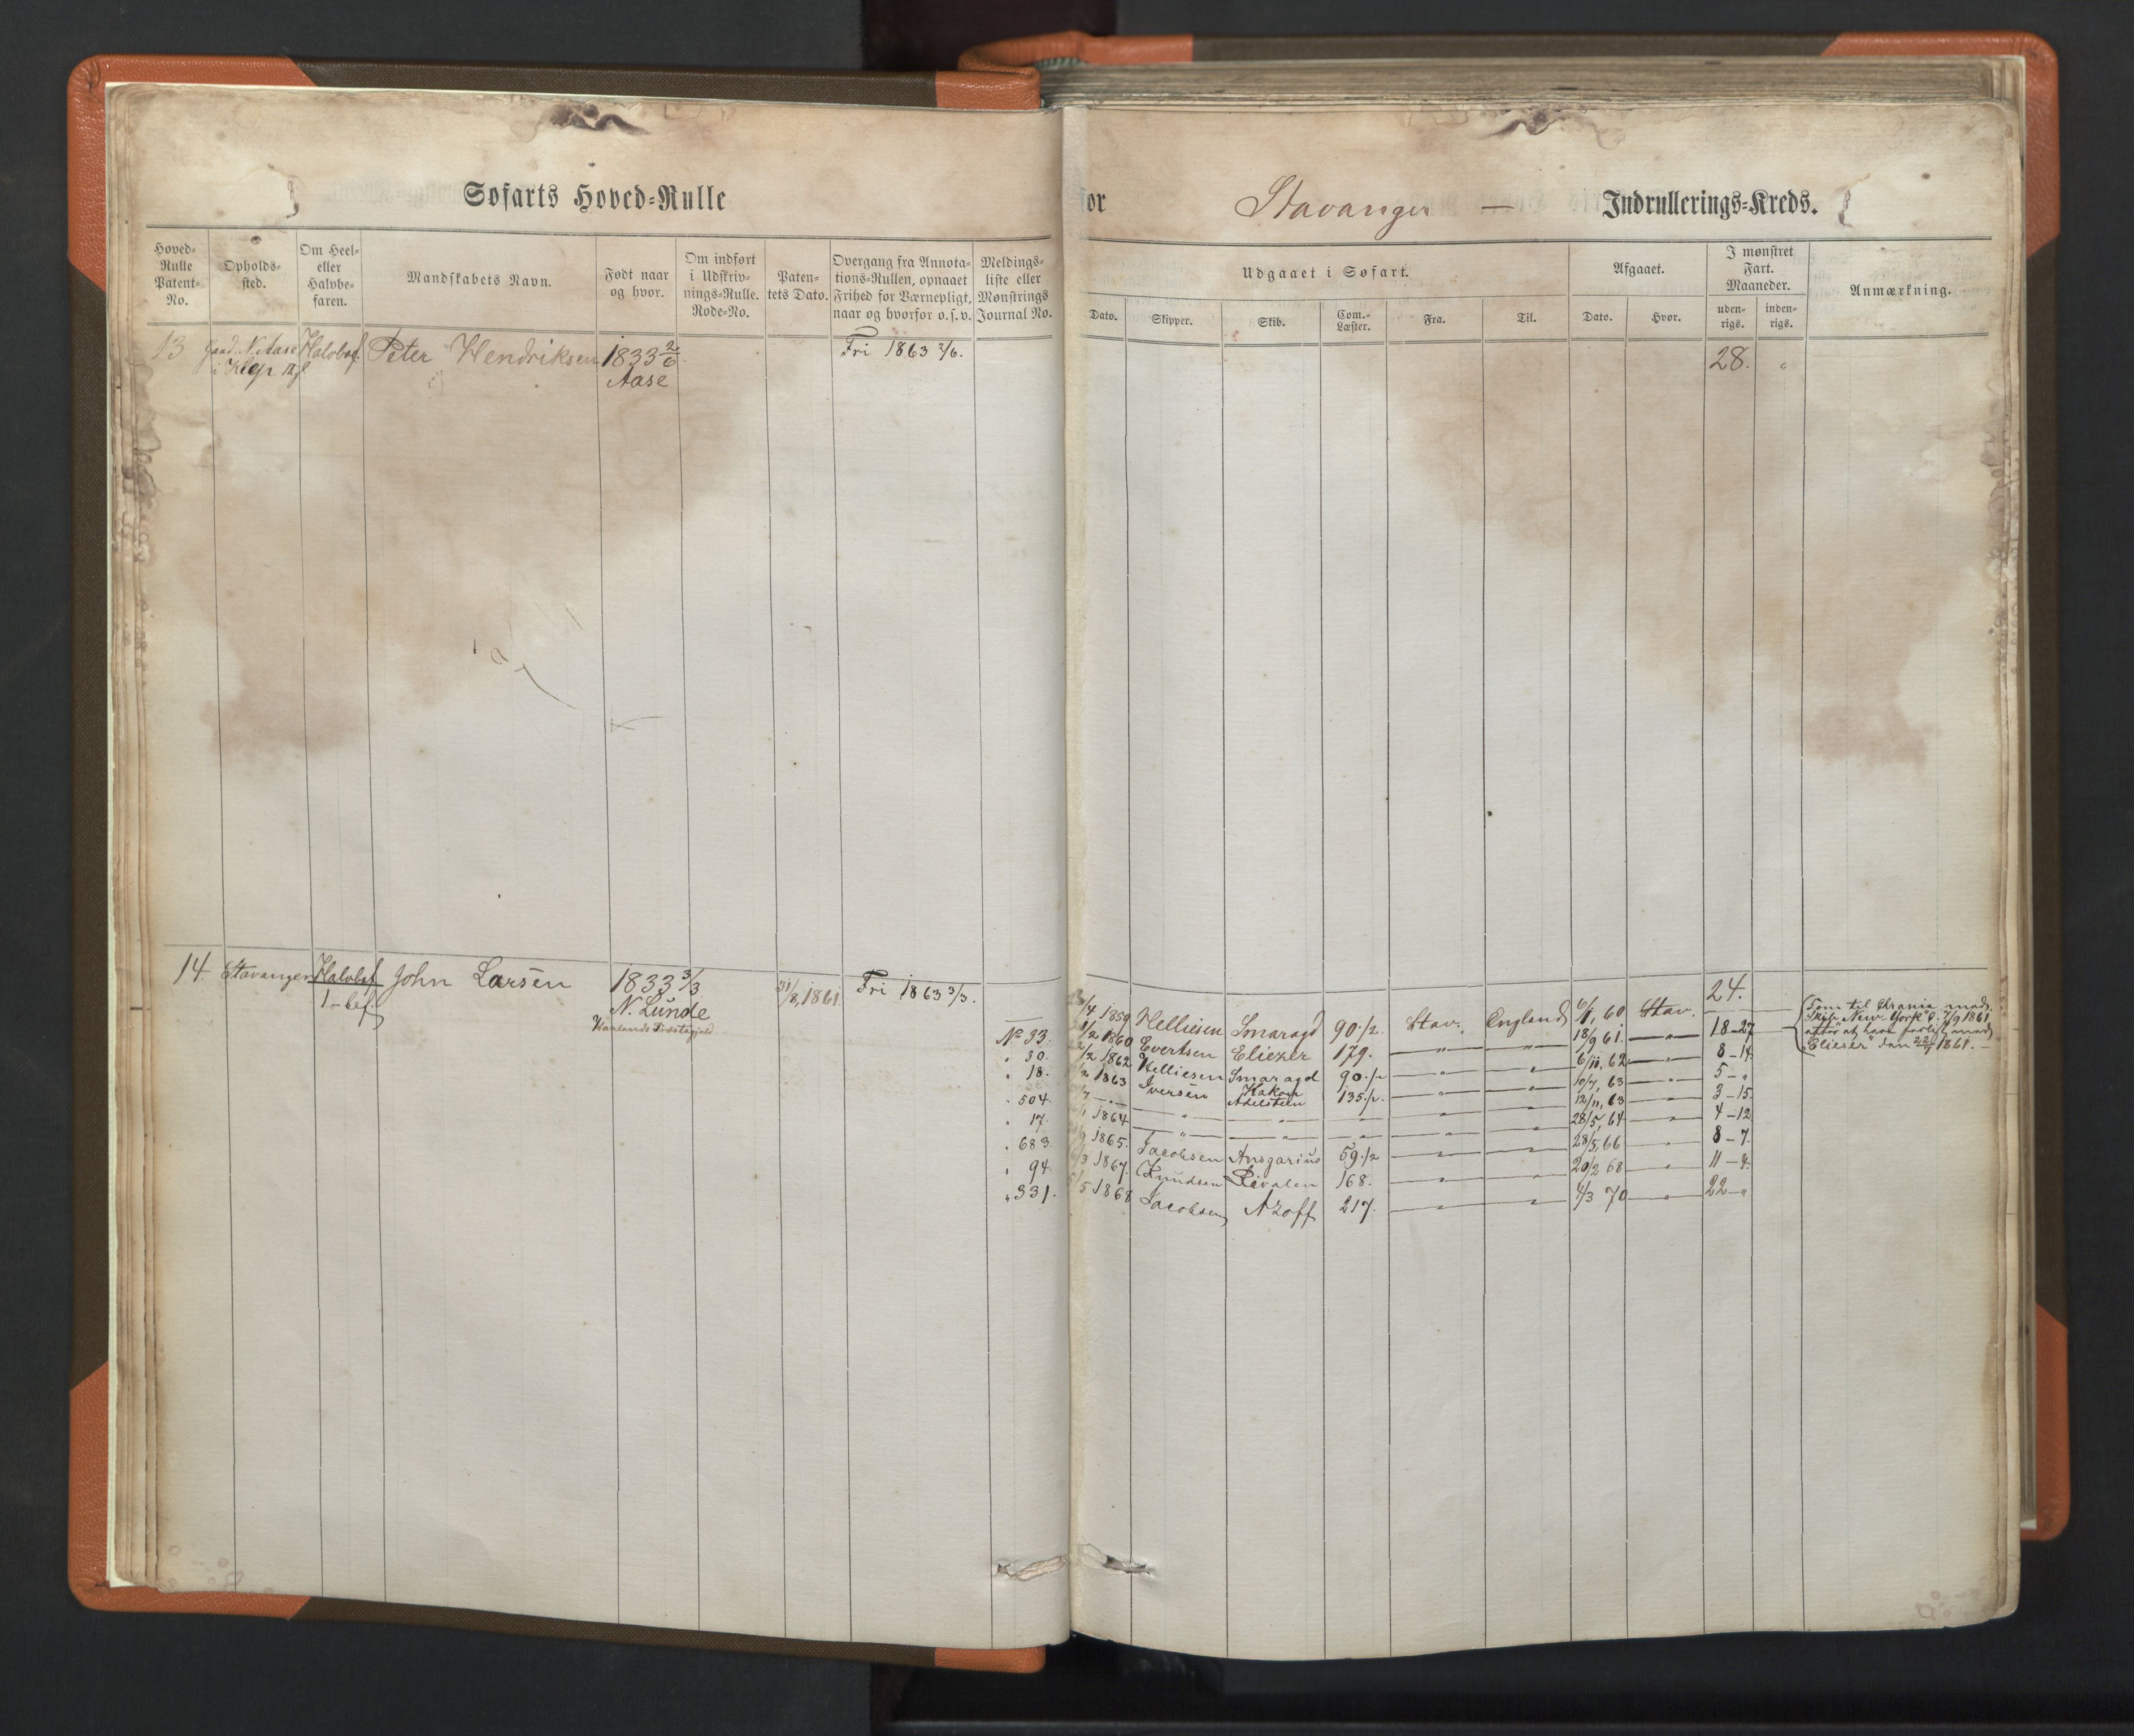 Søfarts Hoved-Rulle
for Stavanger — Indrullerings-Kreds.
Hoved-Rulle Patent-No.
Opholds-sted.
Om Heel- eller Halvbe-faren.
Mandskabets Navn.
Født naar og hvor.
Om indført i Udskriv-nings-Rulle. Rode-No.
Paten-tets Dato.
Overgang fra Annota-tions-Rullen, opnaaet Frihed for Værnepligt, naar og hvorfor o.s.v.
Meldings-liste eller Mønstrings Journal No.
Udgaaet i Søfart.
Dato.
Skipper.
Skib.
Com.-Læster.
Fra.
Til.
Afgaaet.
Dato.
Hvor.
I mønstret Fart. Maaneder.
uden-rigs.
inden-rigs.
Anmærkning.
13 Gaad. N. Aase Halvbef. Peter Hendriksen 1833 2/6 Fri 1863 2/6. 28. "
i Klep
Aase
14. Stavanger Halvbef John Larsen 1833 3/3 31/8, 1861. Fri 1863 3/3. 24.
1-bef. N. Lunde
No 33. /4 1859 Helliesen Smaragd 90 1/2. Stav. England 6/1, 60 Stav.
" 30. /2 1860 Evertsen Eliezer 179. — " — " 18/9 61. — " 18-27
" 18. /2 1862 Helliesen Smaragd 90 1/2 — " — " 6/11, 62 — " 8-14
1863 Iversen Hakon Adelsteen 135 1/2. — " — " 10/7, 63 — " 5-"
" 504. — " — " — " — " 12/11, 63 — " 3-15.
" 17. 1864 — " — " — " — " 28/5, 64 — " 4-12
" 683. 1865. Jacobsen Ansgarius 59 1/2 — " — " 28/5, 66 — " 8-7.
" 94. /3 1867. Knudsen Rivalen 168. — " — " 20/2 68 — " 11-
" 331. /5 1868 Jacobsen Azoff 217. — " — " 4/3 70 — " 22-"
Kom til Urania med
Skib New-York d. 7/9 1861
efter at have forlist med
"Elieser" den 22/7 1861. —